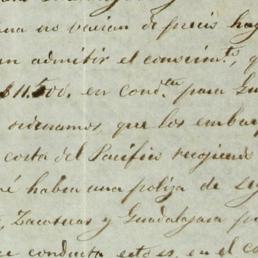 na no varian de precio hay
an admitir el conocim.to, q
$11.500. en cond.ta para Gu
ordenamos, que los embarq
costa del Pacifico recogiendo
ré habia una poliza de seg
, Zacatecas y Guadalajara p
conducta esto es, en el ca